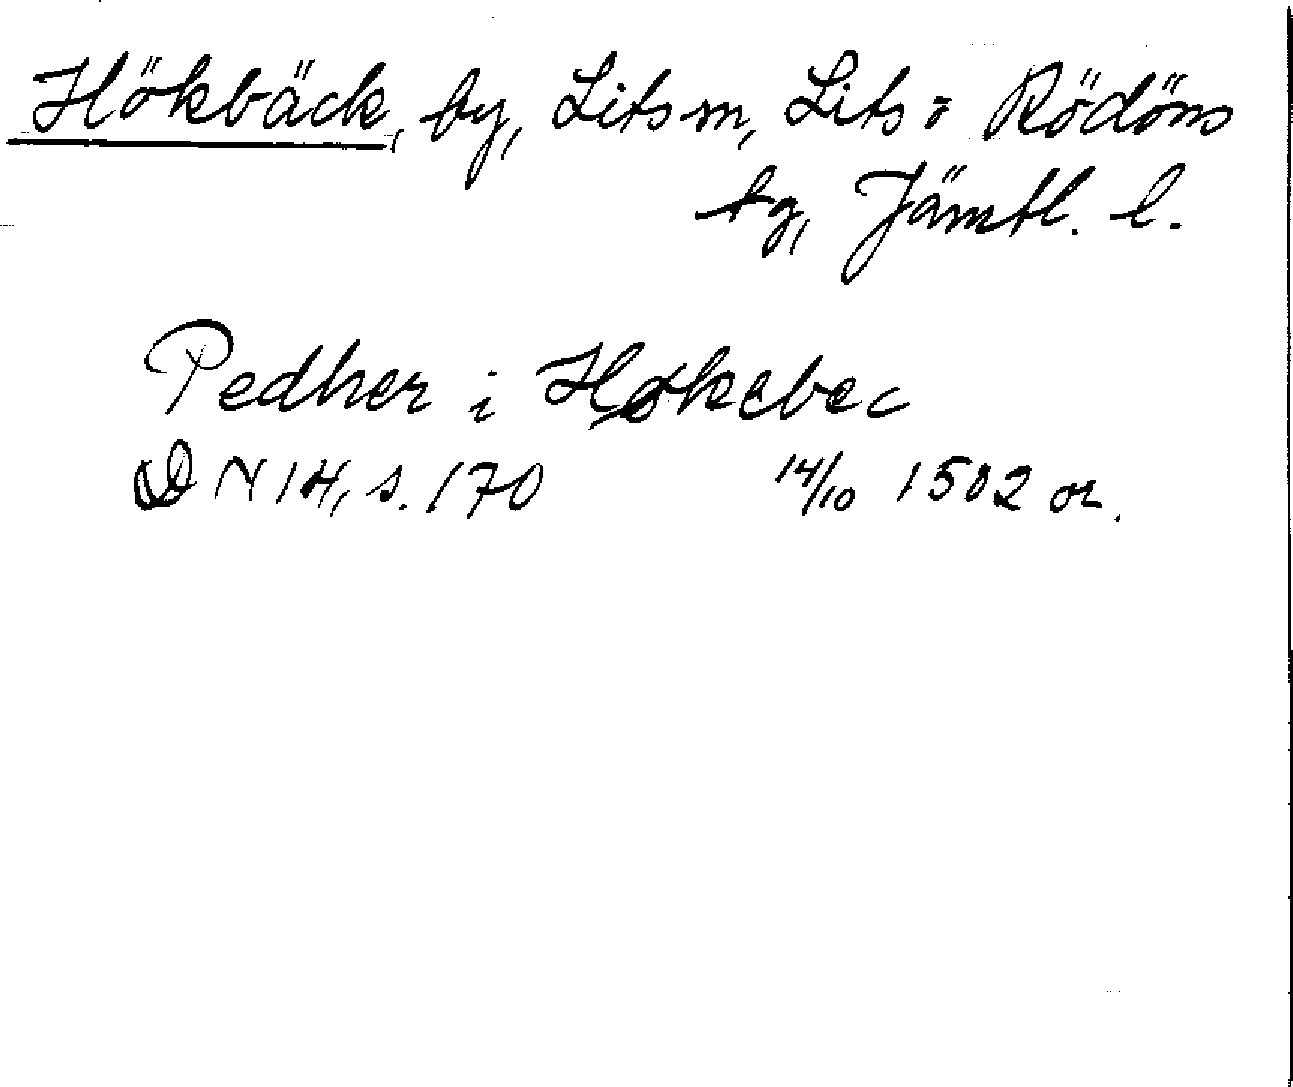 Hökbäck, by, Lits m, Lits o Rödöns
tg, Jämtl. l.
Pedher i Høkebec
DN 14, s. 170 14/10 1502 or.